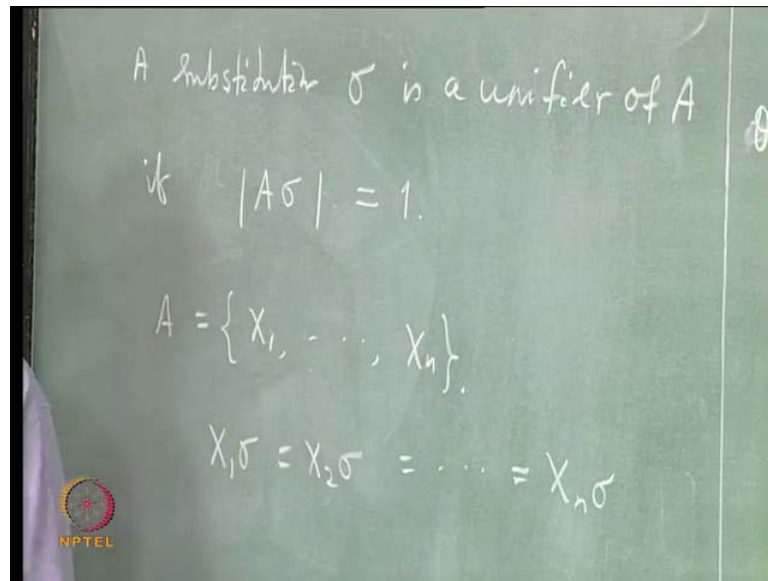 A substitution σ is a unifier of A
if |Aσ| = 1.
A = {X₁, - - -, Xₙ}.
X₁σ = X₂σ = - - - - = Xₙσ
θ
NPTEL